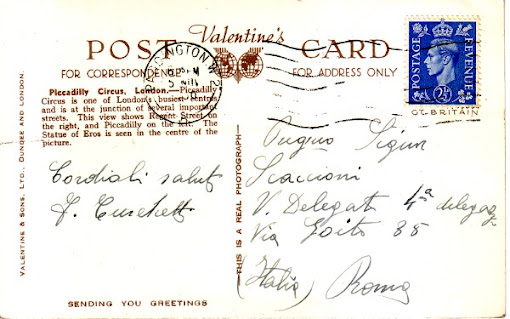 Valentine's
POST CARD
FOR CORRESPONDENCE
FOR ADDRESS ONLY
PADDINGTON W.2
POSTAGE REVENUE
2½D
GT. BRITAIN
Piccadilly Circus, London.—Piccadilly
Circus is one of London's busiest centres
and is at the junction of several important
streets. This view shows Regent Street on
the right, and Piccadilly on the left. The
Statue of Eros is seen in the centre of the
picture.
Cordiali saluti
VALENTINE & SONS, LTD., DUNDEE AND LONDON.
THIS IS A REAL PHOTOGRAPH
Scaccioni
V. Delegat 4ª
Via Goito 35
(Italia) Roma
SENDING YOU GREETINGS